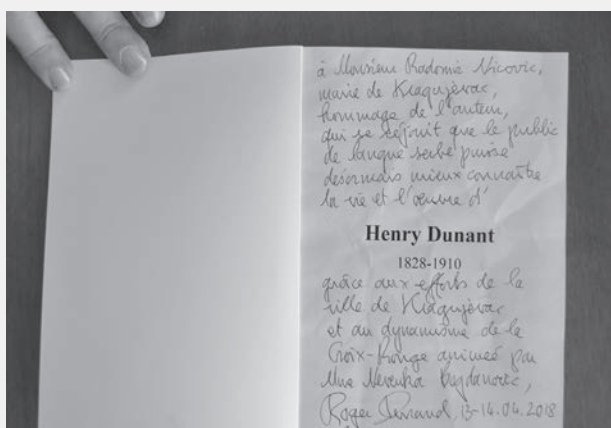 à Monsieur Nicovic,
maire de Kragujèvac,
hommage de l'auteur,
qui se réjouit que le public
de langue serbe puisse
désormais mieux connaître
la vie et l'œuvre d'
Henry Dunant
1828-1910
grâce aux efforts de la
ville de Kragujèvac
et au dynamisme de la
Croix-Rouge animée par
Mme Nevenka
Roger Durand, 13-14.04.2018